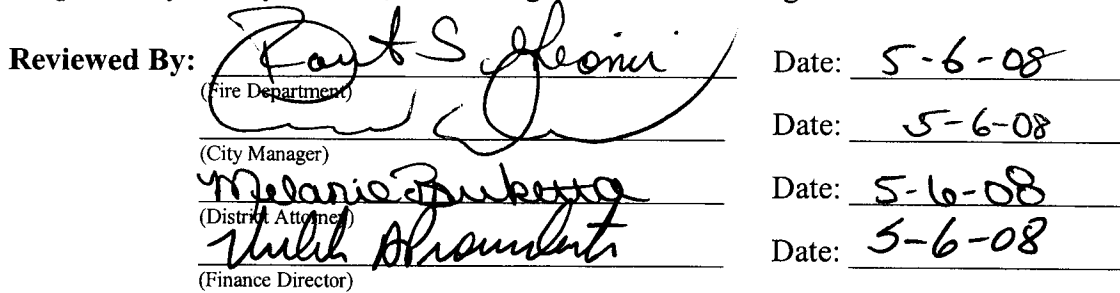 Reviewed By: S Date: 5-6-08
(Fire Department)
Date: 5-6-08
(City Manager)
Melanie Date: 5-6-08
(District Attorney)
Date: 5-6-08
(Finance Director)